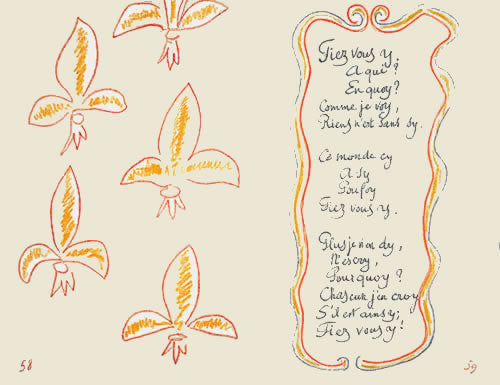 Fiez vous y.
A qui ?
En quoy ?
Comme je voy,
Riens n'est sans sy.
Ce monde cy
A sy
Pou foy
Fiez vous y.
Plus je n'en dy,
N'escry,
Pour quoy ?
Chascun j'en croy
S'il est ainsy ;
Fiez vous y !
58
59